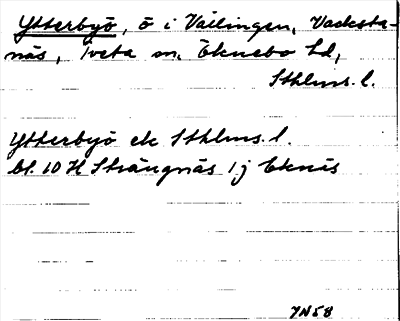 Ytterbyö, ö i Vällingen, Vackstanäs, Tveta sn, Öknebo hd,
Sthlms. l.
Ytterbyö ek Sthlms. l.
bl. 10 H Strängnäs 1j Eknäs
YN58